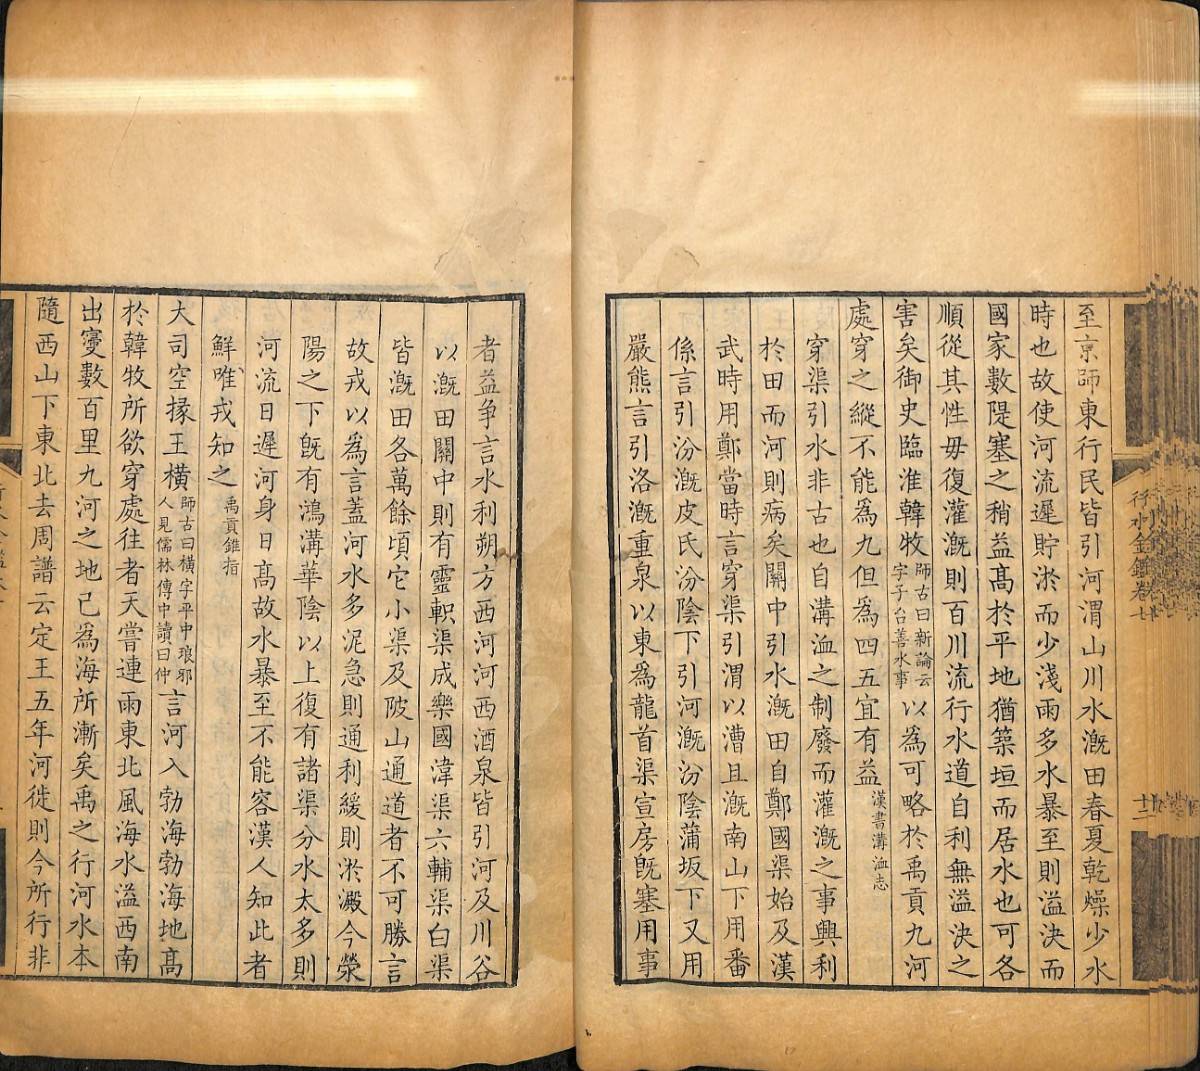 至京師東行民皆引河渭山川水漑田春夏乾燥少水
時也故使河流遲貯淤而少淺雨多水暴至則溢決而
國家數隄塞之稍益高於平地猶築垣而居水也可各
順從其性毋復灌漑則百川流行水道自利無溢決之
害矣御史臨淮韓牧師古曰新論云字子台善水事以為可略於禹貢九河
處穿之縱不能為九但為四五宜有益漢書溝洫志
穿渠引水非古也自溝洫之制廢而灌漑之事興利
於田而河則病矣關中引水漑田自鄭國渠始及漢
武時用鄭當時言穿渠引渭以漕且漑南山下用番
係言引汾漑皮氏汾陰下引河漑汾陰蒲坂下又用
嚴熊言引洛漑重泉以東為龍首渠宣房旣塞用事
者益爭言水利朔方西河河西酒泉皆引河及川谷
以漑田關中則有靈軹渠成樂國湋渠六輔渠白渠
皆漑田各萬餘頃它小渠及陂山通道者不可勝言
故戎以為言蓋河水多泥急則通利緩則淤澱今滎
陽之下旣有鴻溝華陰以上復有諸渠分水太多則
河流日遲河身日高故水暴至不能容漢人知此者
鮮唯戎知之禹貢錐指
大司空掾王橫師古曰橫字平中琅邪人見儒林傳中讀曰仲言河入勃海勃海地高
於韓牧所欲穿處往者天嘗連雨東北風海水溢西南
出寖數百里九河之地已為海所漸矣禹之行河水本
隨西山下東北去周譜云定王五年河徙則今所行非
行水金鑑卷七
十二